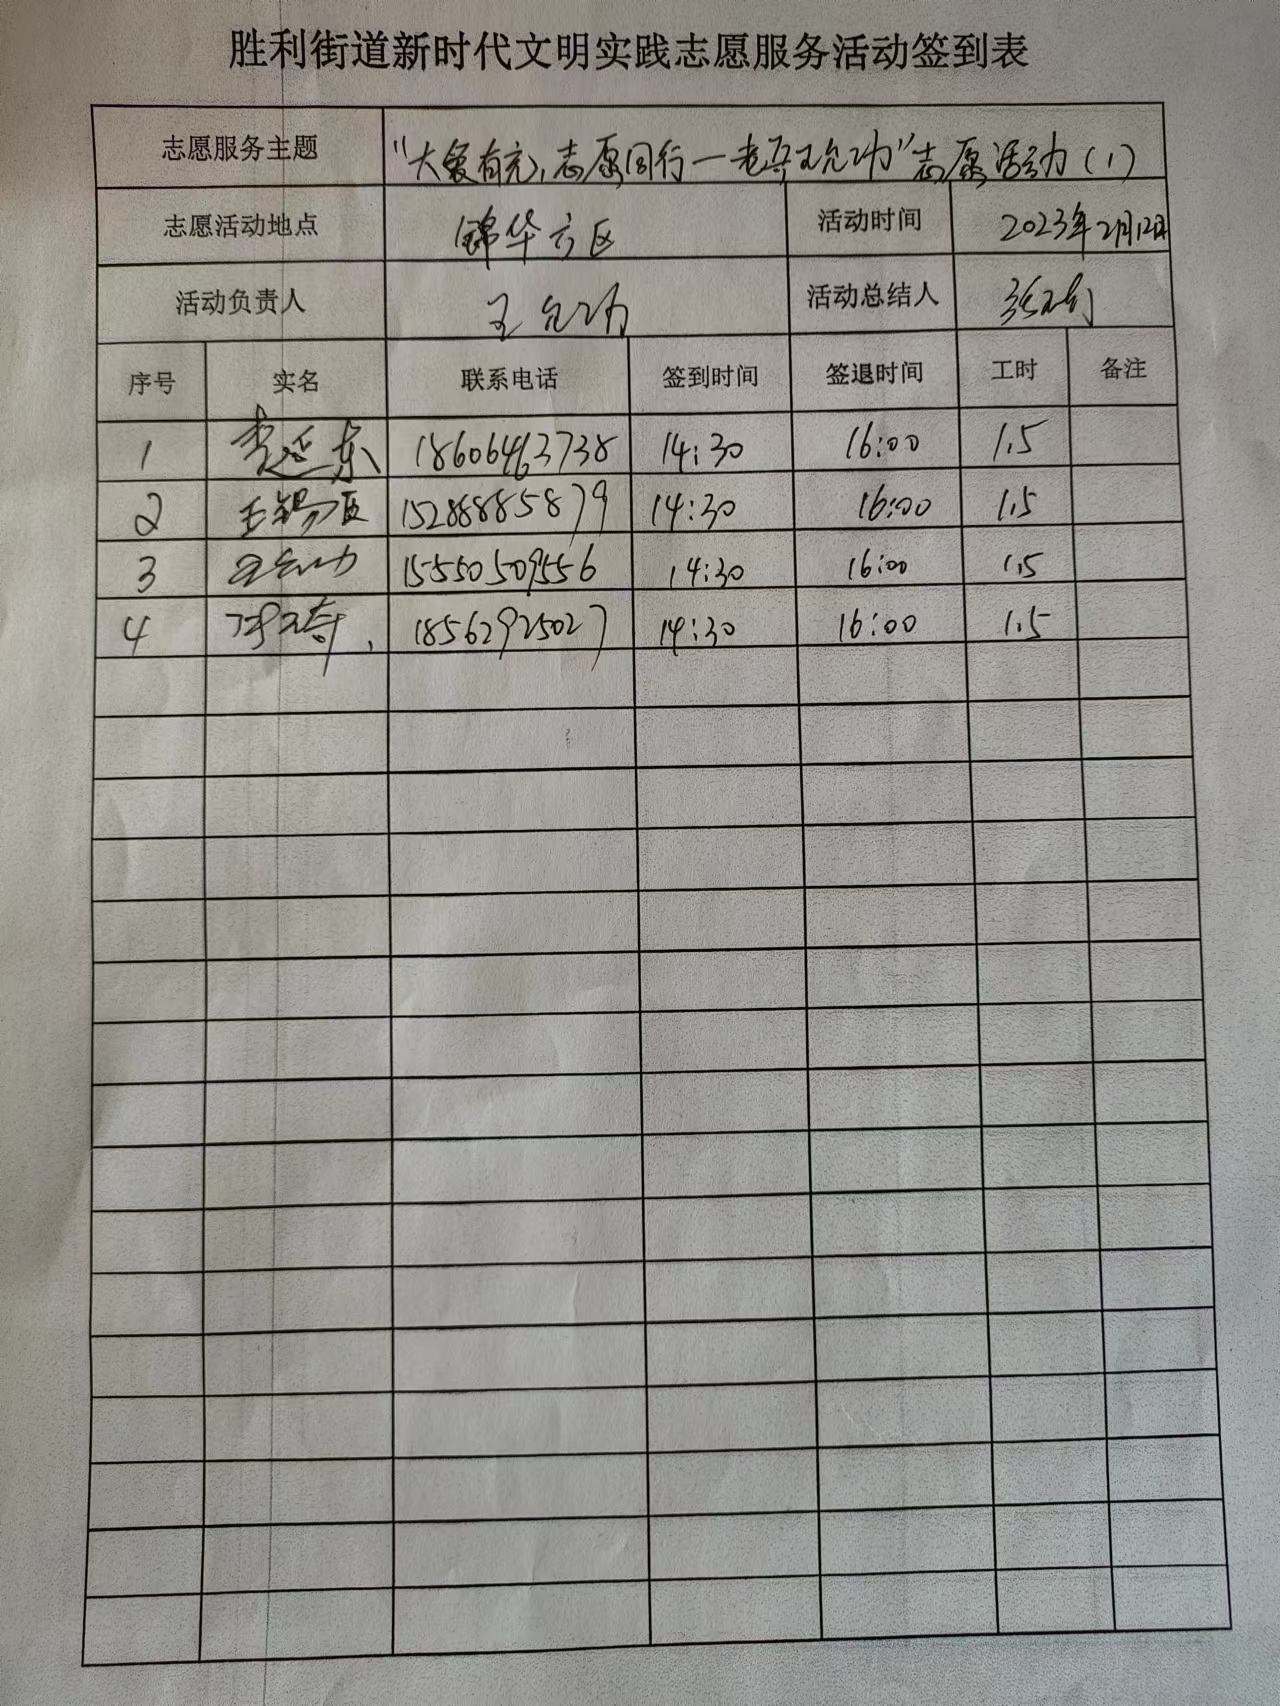 胜利街道新时代文明实践志愿服务活动签到表
志愿服务主题 “大爱有充,志愿同行一老兵王允功”志愿活动(1)
志愿活动地点 锦华六区 活动时间 2023年2月12日
活动负责人 王允功 活动总结人
序号 实名 联系电话 签到时间 签退时间 工时 备注
1 李延东 18606463738 14:30 16:00 1.5
2 王锡臣 15288885879 14:30 16:00 1.5
3 王允功 15550509556 14:30 16:00 1.5
4 18562925027 14:30 16:00 1.5